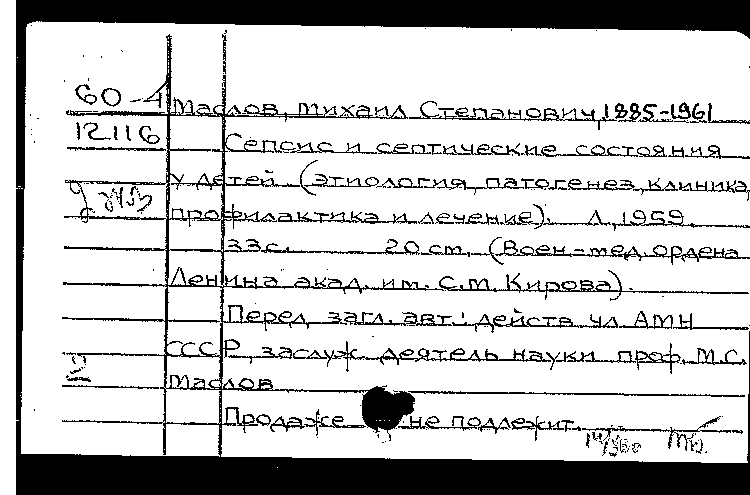 60-4 Маслов, Михаил Степанович, 1885-1961
12116 Сепсис и септические состояния
у детей. (Этиология, патогенез, клиника,
профилактика и лечение). Л., 1959.
33 с. 20 см. (Воен.-мед. ордена
Ленина акад. им. С.М. Кирова).
Перед загл. авт.: действ. чл. АМН
СССР, заслуж. деятель науки проф. М.С.
Маслов
Продаже не подлежит.